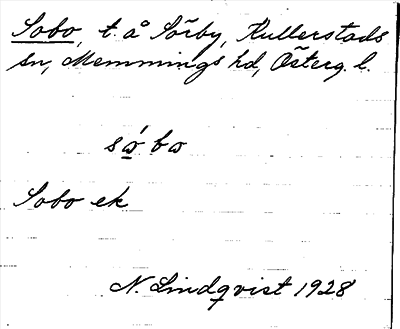 Sobo, t. å Sörby, Kullerstads
sn, Memmings hd, Österg. l.
sɷ́bɷ
Sobo ek
N. Lindqvist 1928